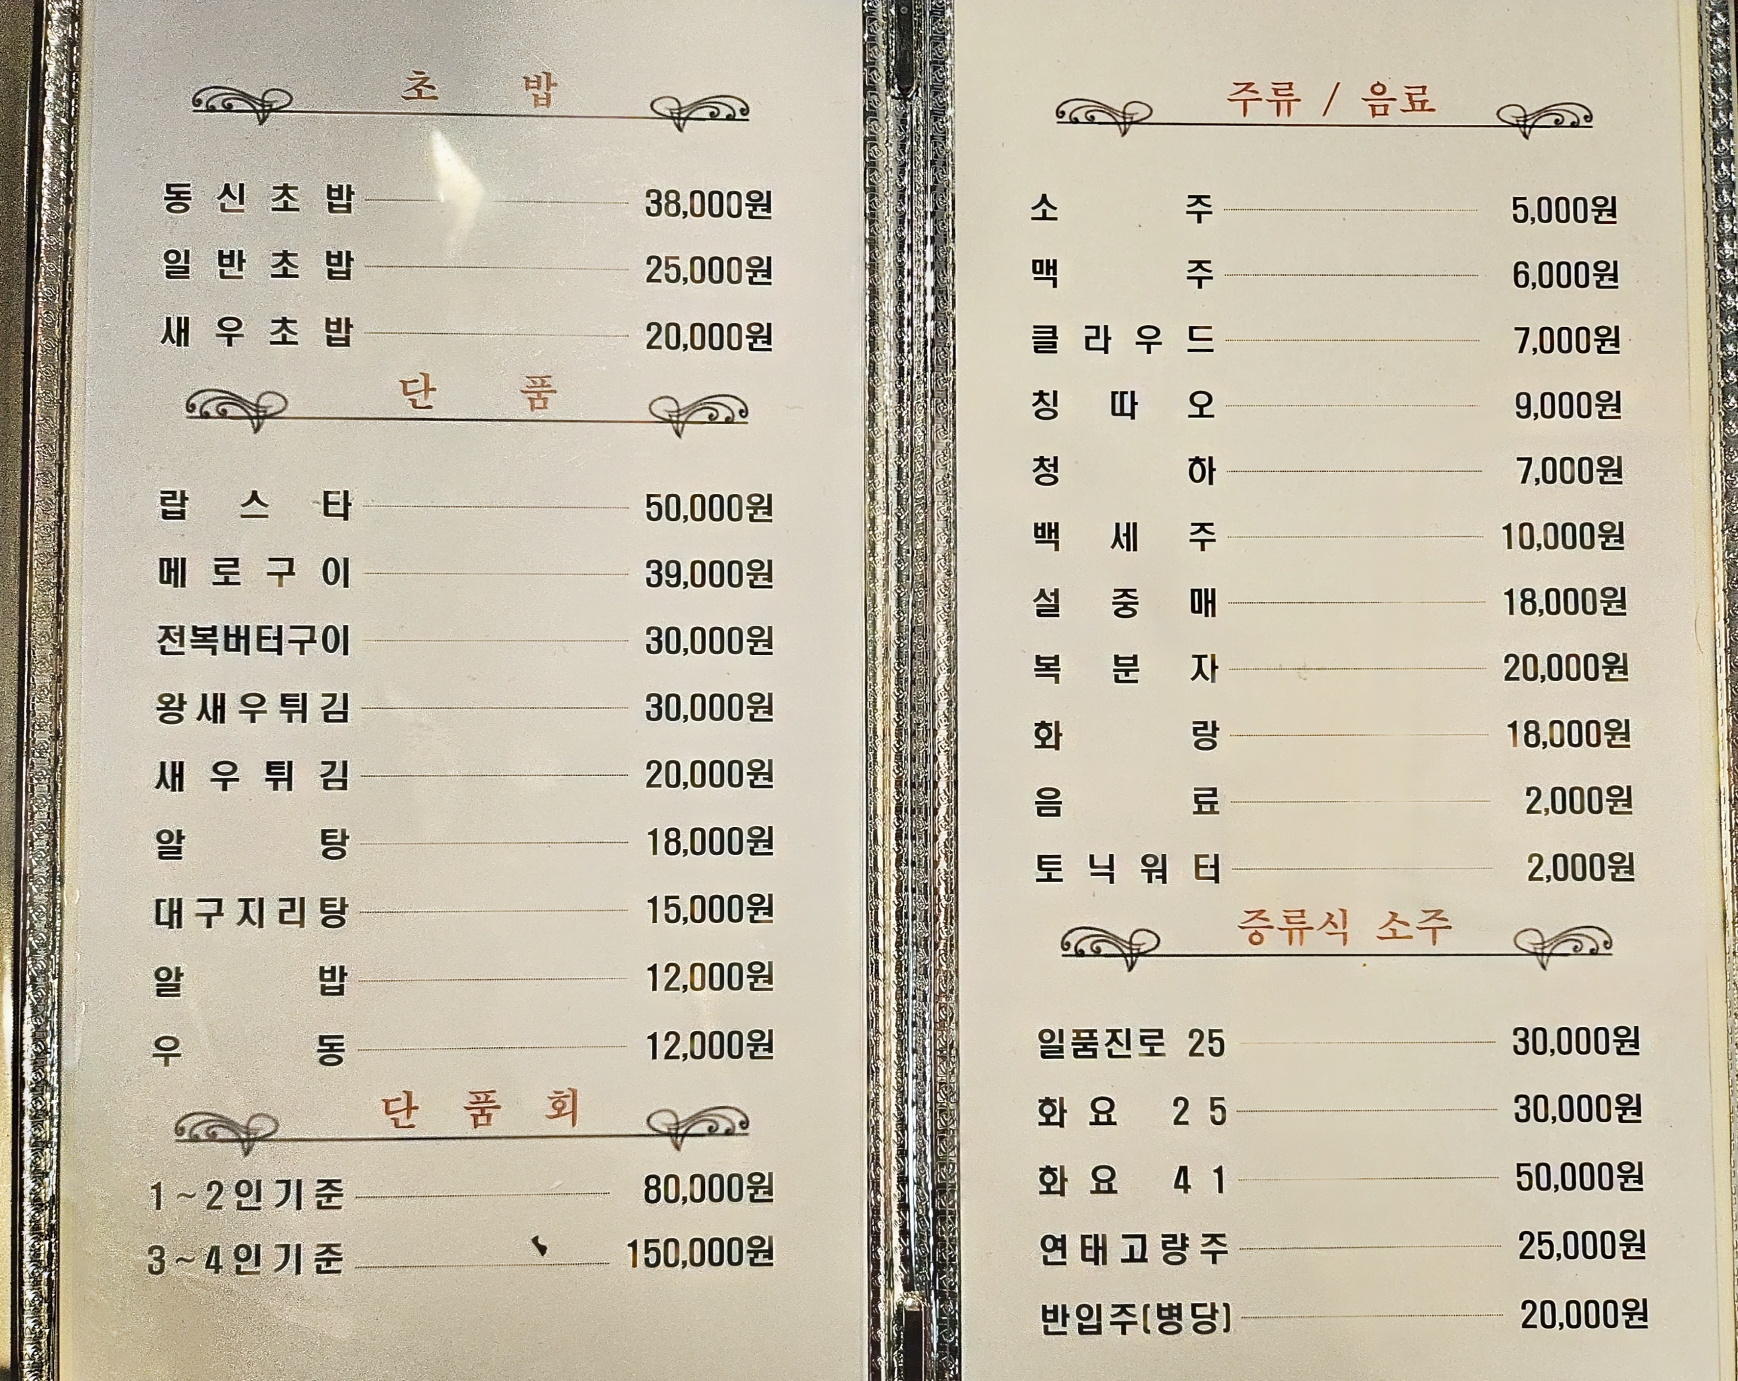 초 밥
동신초밥 38,000원
일반초밥 25,000원
새우초밥 20,000원
단 품
랍스타 50,000원
메로구이 39,000원
전복버터구이 30,000원
왕새우튀김 30,000원
새우튀김 20,000원
알탕 18,000원
대구지리탕 15,000원
알밥 12,000원
우동 12,000원
단 품 회
1~2인기준 80,000원
3~4인기준 150,000원
주류 / 음료
소주 5,000원
맥주 6,000원
클라우드 7,000원
칭따오 9,000원
청하 7,000원
백세주 10,000원
설중매 18,000원
복분자 20,000원
화랑 18,000원
음료 2,000원
토닉워터 2,000원
증류식 소주
일품진로 25 30,000원
화요 25 30,000원
화요 41 50,000원
연태고량주 25,000원
반입주(병당) 20,000원